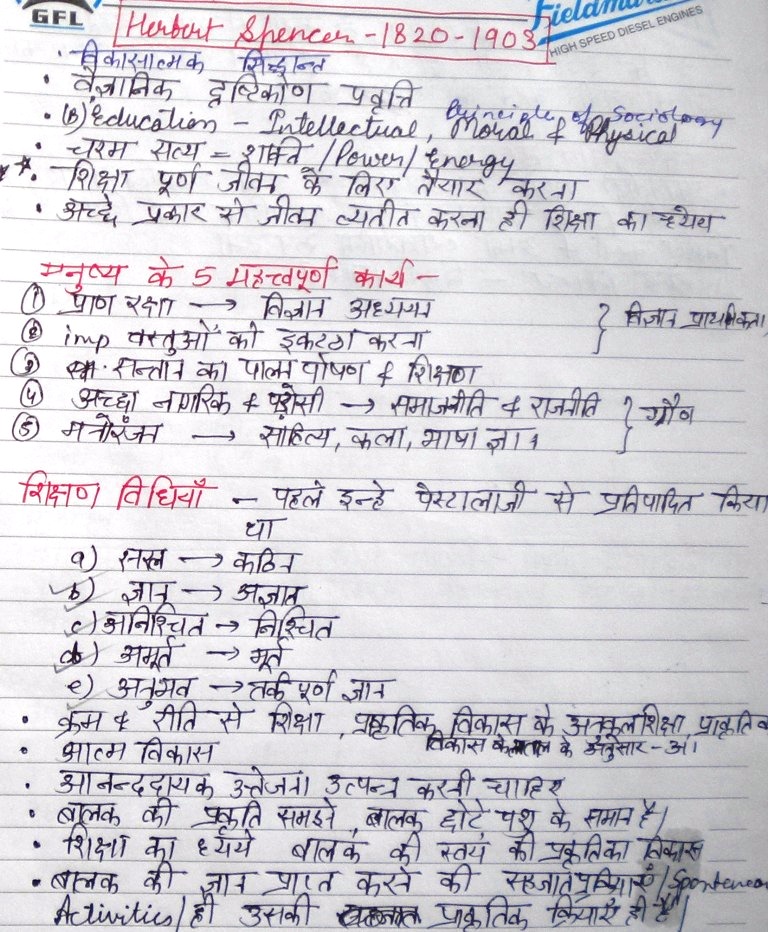 GFL
Fieldma
HIGH SPEED DIESEL ENGINES
Herbert Spencer - 1820-1903
• विकासात्मक सिद्धान्त
• वैज्ञानिक दृष्टिकोण प्रवृत्ति
Principle of Sociology
• (B) Education - Intellectual, Moral & Physical
• चरम सत्य = शक्ति /Power/ Energy
• शिक्षा पूर्ण जीवन के लिए तैयार करना
• अच्छे प्रकार से जीवन व्यतीत करना ही शिक्षा का ध्येय
मनुष्य के 5 महत्त्वपूर्ण कार्य -
① प्राण रक्षा → विज्ञान अध्ययन
} विज्ञान
② imp वस्तुओं को इकटठा करना
③ सन्तान का पालन पोषण & शिक्षण
④ अच्छा नागरिक & पड़ोसी → समाजनीति & राजनीति
} गौण
⑤ मनोरंजन → साहित्य, कला, भाषा ज्ञान
शिक्षण विधियाँ - पहले इन्हे पेस्टालाजी से प्रतिपादित किया
था
a) सरल → कठिन
b) ज्ञान → अज्ञात
c) अनिश्चित → निश्चित
d) अमूर्त → मूर्त
e) अनुभव → तर्क पूर्ण ज्ञान
• क्रम & रीति से शिक्षा, प्राकृतिक विकास के अनुकूल शिक्षा, प्राकृतिक
विकास के के अनुसार -
• आत्म विकास
• आनन्ददायक उत्तेजना उत्पन्न करनी चाहिए
• बालक की प्रकृति समझने, बालक छोटे पशु के समान है।
• शिक्षा का ध्येये बालक की स्वयं की प्रकृति का विकास
• बालक की ज्ञान प्राप्त करने की सहजात /Spontaneou
Activities/ ही उसकी प्राकृतिक क्रियाएँ ही है।